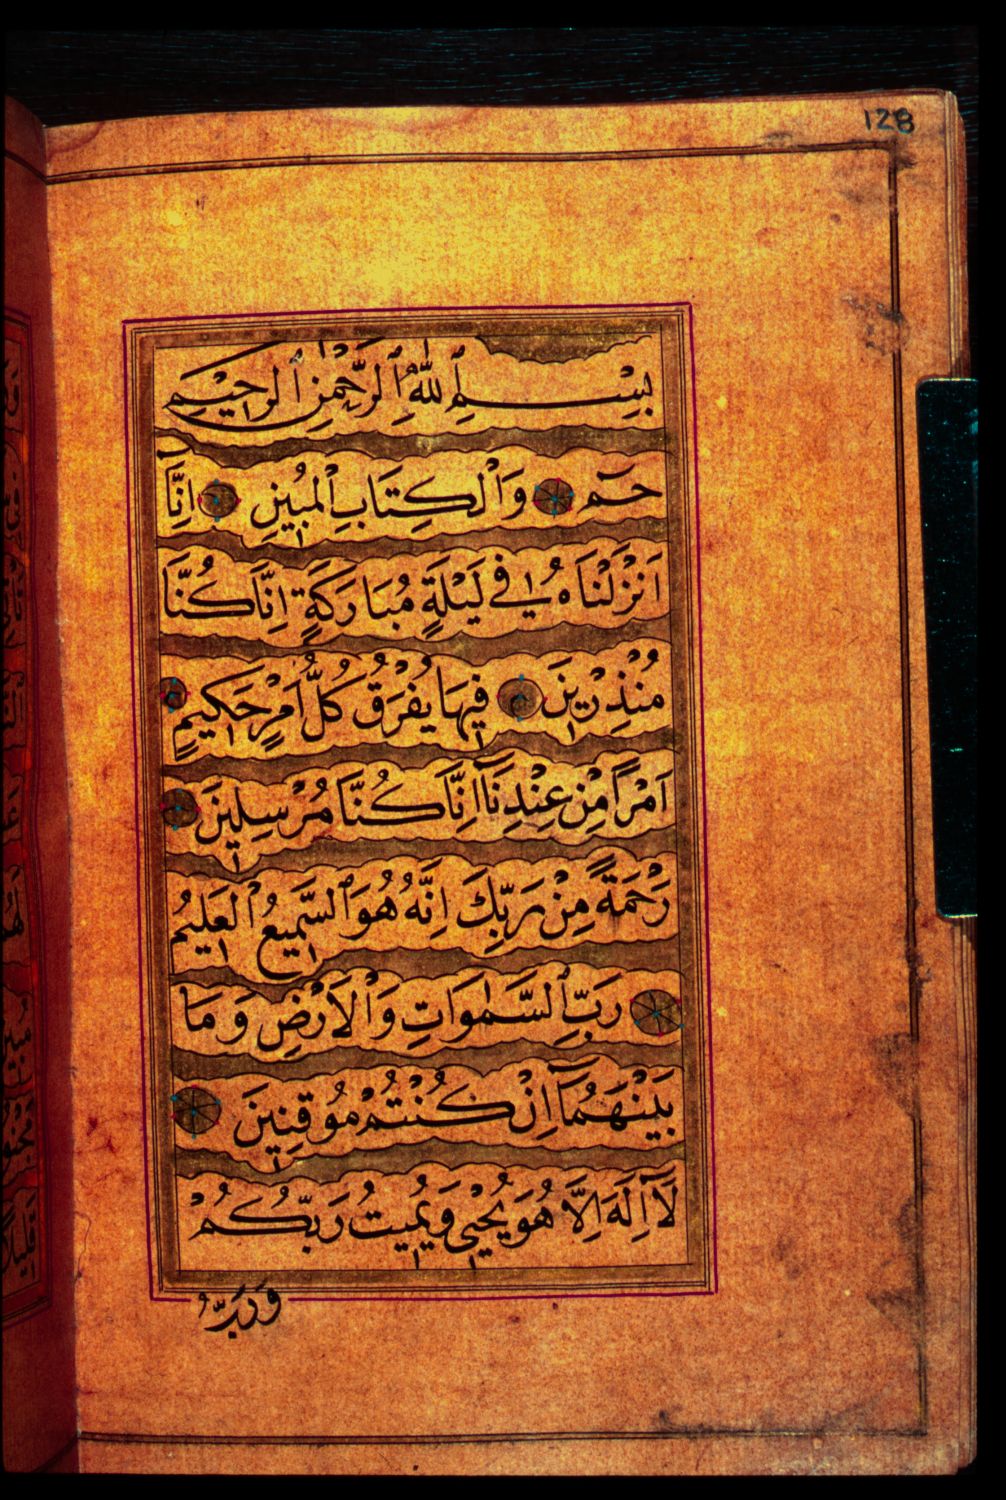 128
بِسْمِ ٱللّٰهِ ٱلرَّحْمٰنِ ٱلرَّحِيْمِ
حٰمٓ وَالْكِتَابِ الْمُبِيْنِ اِنَّٓا
اَنْزَلْنَاهُ فِي لَيْلَةٍ مُبَارَكَةٍ اِنَّا كُنَّا
مُنْذِرِيْنَ فِيْهَا يُفْرَقُ كُلُّ اَمْرٍ حَكِيْمٍ
اَمْرًا مِنْ عِنْدِنَٓا اِنَّا كُنَّا مُرْسِلِيْنَ
رَحْمَةً مِنْ رَبِّكَ اِنَّهُ هُوَ السَّمِيْعُ الْعَلِيْمُ
رَبِّ السَّمٰوَاتِ وَالْاَرْضِ وَمَا
بَيْنَهُمَٓا اِنْ كُنْتُمْ مُوْقِنِيْنَ
لَٓا اِلٰهَ اِلَّا هُوَ يُحْيِيْ وَيُمِيْتُ رَبُّكُمْ
وَرَبُّ